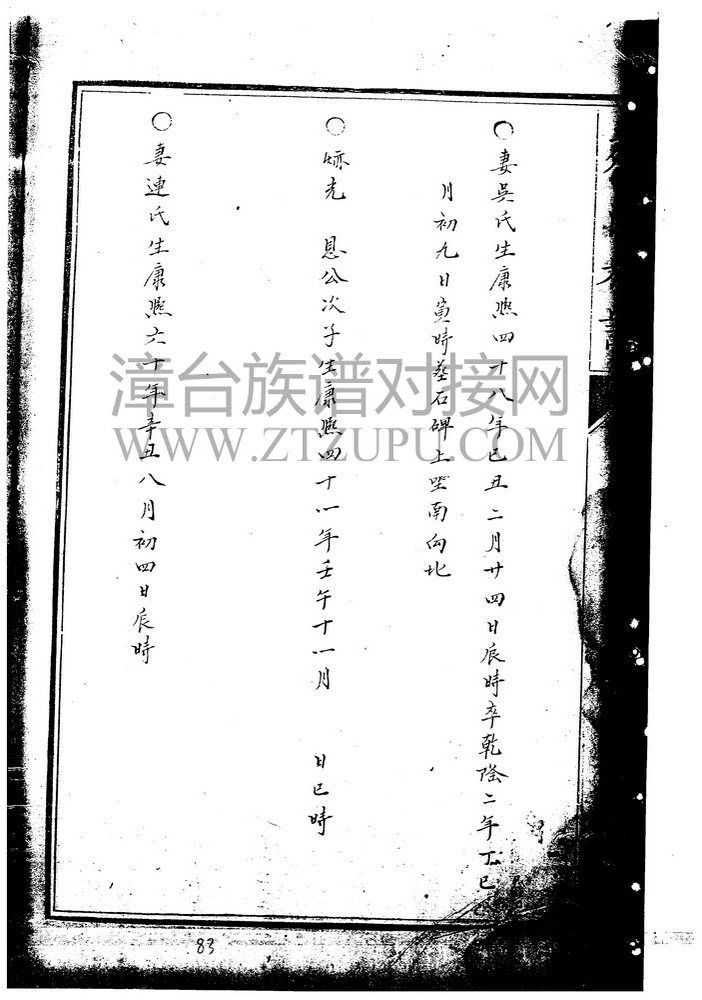 ○妻吳氏生康熙四十八年己丑二月廿四日辰時卒乾隆二年丁巳
月初九日寅時葬石碑上坐南向北
○ 光 恩公次子生康熙四十一年壬午十一月 日巳時
○妻連氏生康熙六十年辛丑八月初四日辰時
漳台族谱对接网
WWW.ZTZUPU.COM
83